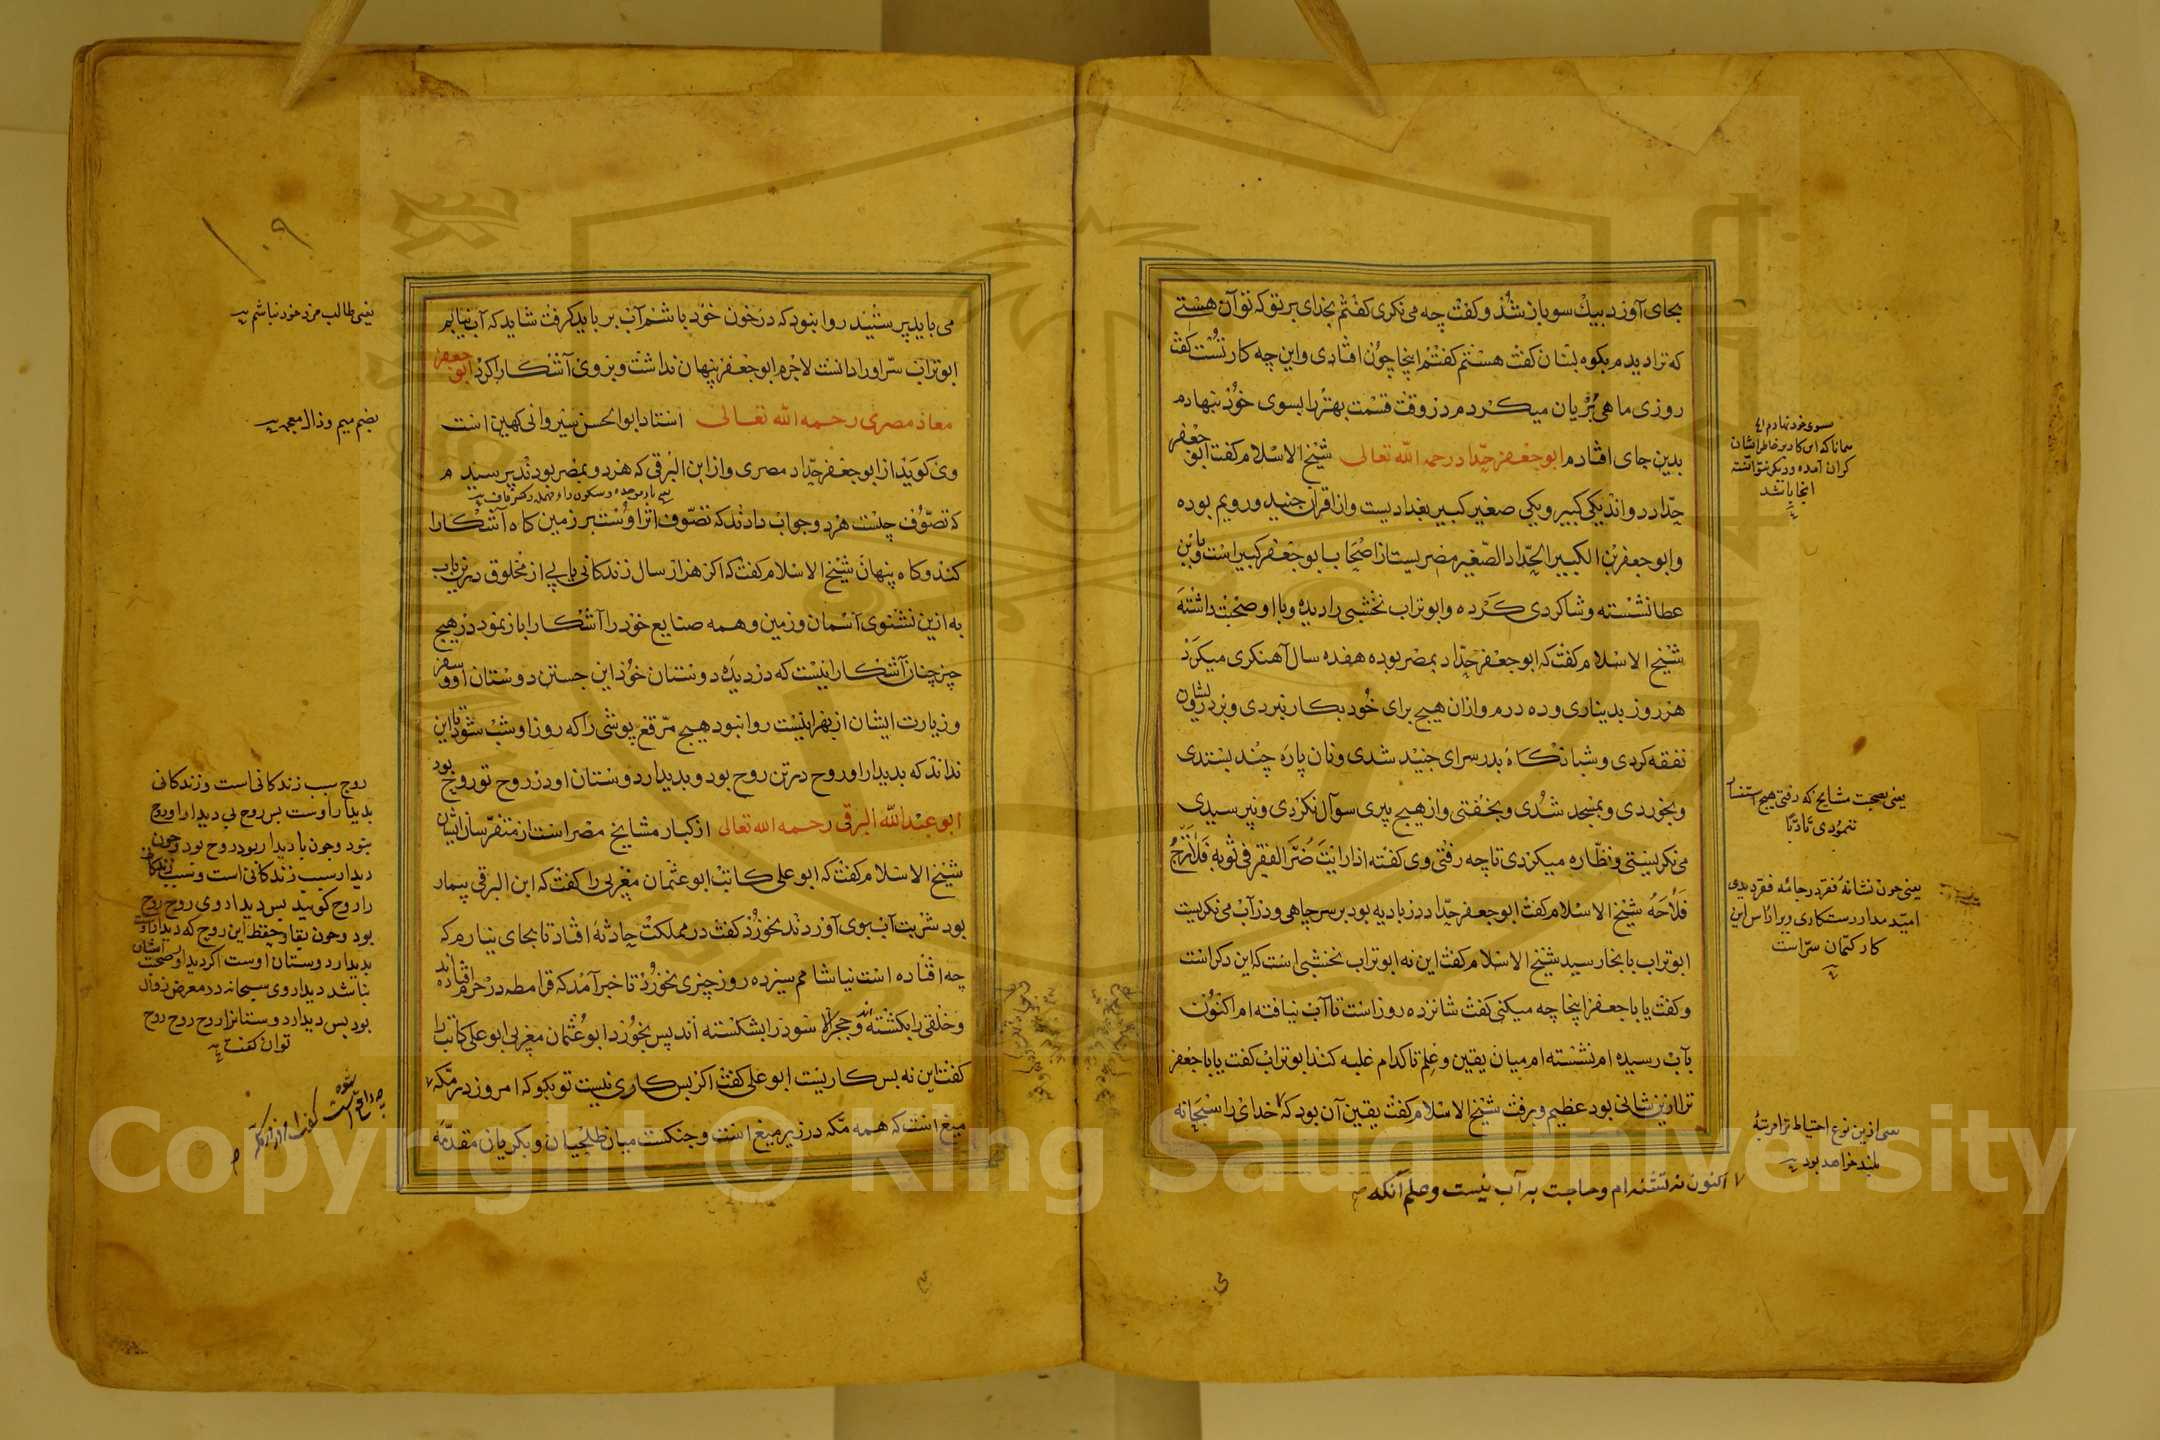 بجای آورد بیك سو باز شد و کفت چه می نکری کفتم بخدای بر تو که تو آن هستی
که ترا دیدم بکوه لبنان کفت هستم کفتم اینجا چون افتادی و این چه کار تست کفت
روزی ماهی بریان میکردم در وقت قسمت بهتر را بسوی خود بنهادم
بدین جای افتادم ابو جعفر حدّاد رحمه الله تعالی شیخ الاسلام کفت ابو جعفر
حدّاد دو اند یکی کبیر و یکی صغیر کبیر بغدادیست و از اقران جنید و رویم بوده
و ابو جعفر بن الکبیر الحدّاد الصّغیر مصریست از اصحاب ابو جعفر کبیر است و با بن
عطا نشسته و شاکردی کرده و ابو تراب نخشبی را دیده و با او صحبت داشته
شیخ الاسلام کفت که ابو جعفر حدّاد بمصر بوده هفده سال آهنکری میکرد
هر روز بدیناری و ده درم و از ان هیچ برای خود بکار نبردی و بر درویشان
نفقه کردی و شبانکاه بدر سرای جنید شدی و نان پاره چند بستدی
و بخوردی و بمسجد شدی و بخفتی و از هیچ پیری سوآل نکردی و نپرسیدی
می نکریستی و نظّاره میکردی تا چه رفتی وی کفته اذا رایت ضرّ الفقیر فی ثوبه فلا ترج
فلاحه شیخ الاسلام کفت ابو جعفر حدّاد در بادیه بود بر سر چاهی و در آب می نکریست
ابو تراب بانجا رسید شیخ الاسلام کفت این نه ابو تراب نخشبی است که این دکر است
و کفت یا با جعفر اینجا چه میکنی کفت شانزده روز است تا آب نیافته ام اکنون
بآب رسیده ام نشسته ام میان یقین و علم تا کدام غلبه کند ابو تراب کفت یا با جعفر
ترا ازین شانی بود عظیم و برفت شیخ الاسلام کفت یقین آن بود که خدای را سبحانه
اکنون نه تشنه ام و حاجت به آب نیست و علم آنکه
بسوی خود نهادم
همانا که این کار بر خاطر ایشان
کران آمده و دیکر نتوانسته
انجا باشد
یعنی بصحبت مشایخ که رفتی هیچ استفسار
ننمودی تادبا
یعنی چون نشانه فقر در جامه فقر دیدی
امید مدار رستکاری ویرا زیرا
کار کتمان سرّ است
یعنی ازین نوع احتیاط ترا مرتبه
بلند خواهد بود
۱۰۹
می باید پرستید روا نبود که در خون خود باشم آب بر باید کرفت شاید که آب نیابم
ابو تراب سرّ او را دانست لاجرم ابو جعفر پنهان نداشت و بر وی آشکارا کرد ابو جعفر
معاذ مصری رحمه الله تعالی استاد ابو الحسن سیروانی کهین است
وی کوید از ابو جعفر حدّاد مصری و از ابن البرقی که هر دو بمصر بودند پرسیدم
که تصوّف چیست هر دو جواب دادند که تصوّف اسرار اوست بر زمین کاه آشکارا
کند و کاه پنهان شیخ الاسلام کفت که اکر هزار سال زندکانی یابی از مخلوق درین باب
به ازین نشنوی آسمان و زمین و همه صنایع خود را آشکارا باز نمود در هیچ
چیز چنان آشکارا نیست که در دیده دوستان خود این جستن دوستان او و سفر
و زیارت ایشان از بهر اینست روا نبود هیچ مرقّع پوشی را که روز او شب شود تا این
نداند که بدیدار او روح در تن روح بود و بدیدار دوستان او در روح تو روح بود
ابو عبد الله البرقی رحمه الله تعالی از کبار مشایخ مصر است از متفرّسان ایشان
شیخ الاسلام کفت که ابو علی کاتب ابو عثمان مغربی را کفت که ابن البرقی بیمار
بود شربت آب بوی آوردند نخورد کفت در مملکت حادثه افتاد تا بجای نیارم که
چه افتاده است نیاشامم سیزده روز چیزی نخورد تا خبر آمد که قرامطه در حرم افتاده
و خلقی را بکشته اند و حجر الاسود را بشکسته اند پس بخورد ابو عثمان مغربی ابو علی کاتب را
کفت این نه بس کاریست ابو علی کفت اکر بس کاری نیست تو بکو که امروز در مکّه
میغ است که همه مکّه در زیر میغ است و جنکست میان طلحیان و بکریان مقدّمه
یعنی طالب مزد خود نباشم
بضم میم و ذال معجمه
روح سبب زندکانی است و زندکانی
بدیدار اوست پس روح بی دیدار او روح
نبود و چون با دیدار بود روح بود و چون
دیدار سبب زندکانی است و سبب زندکانی
را روح کویند پس دیدار وی روح روح
بود و چون بقا و حفظ این روح که دیدار اوست
بدیدار دوستان اوست اکر دیدار و صحبت ایشان
نباشد دیدار وی سبحانه در معرض زوال
بود پس دیدار دوستانرا روح روح روح
توان کفت